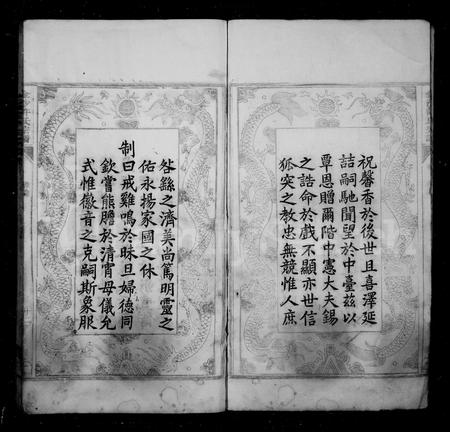 祝馨香於後世且喜澤延
詰嗣馳聞望於中臺茲以
覃恩贈爾階中憲大夫錫
之誥命於戲不顯亦世信
狐突之教忠無競惟人庶
咎繇之濟美尚篤明靈之
佑永揚家國之休
制曰戒雞鳴於昧旦婦德同
欽嘗熊膽於清宵母儀允
式惟徽音之克嗣斯象服